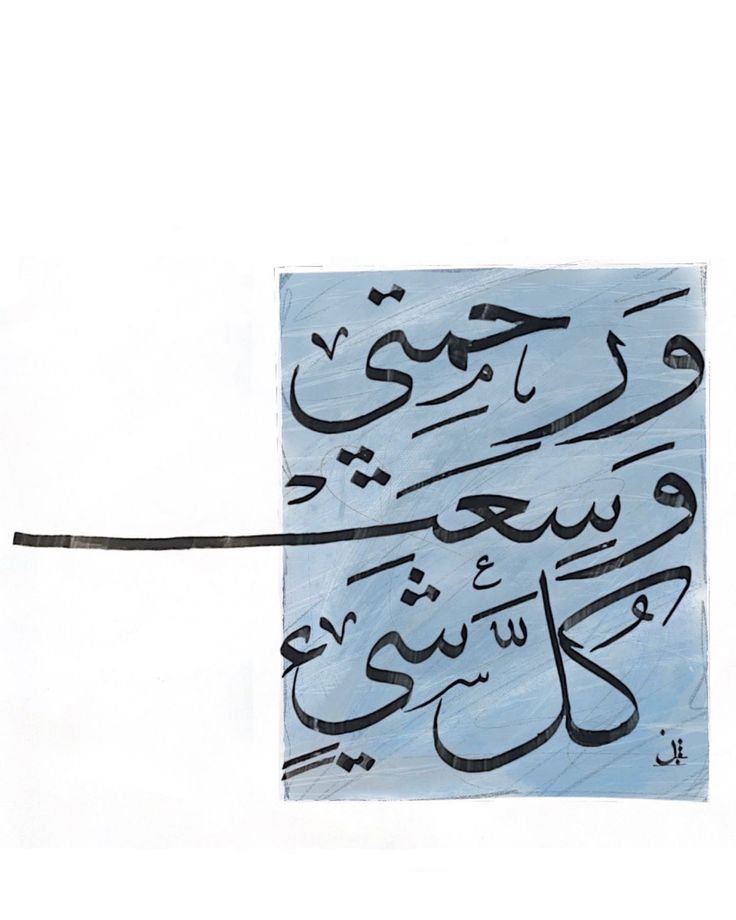 وَرَحمِتي
وَسِعَتْ
كُلَّ شَيءٍ